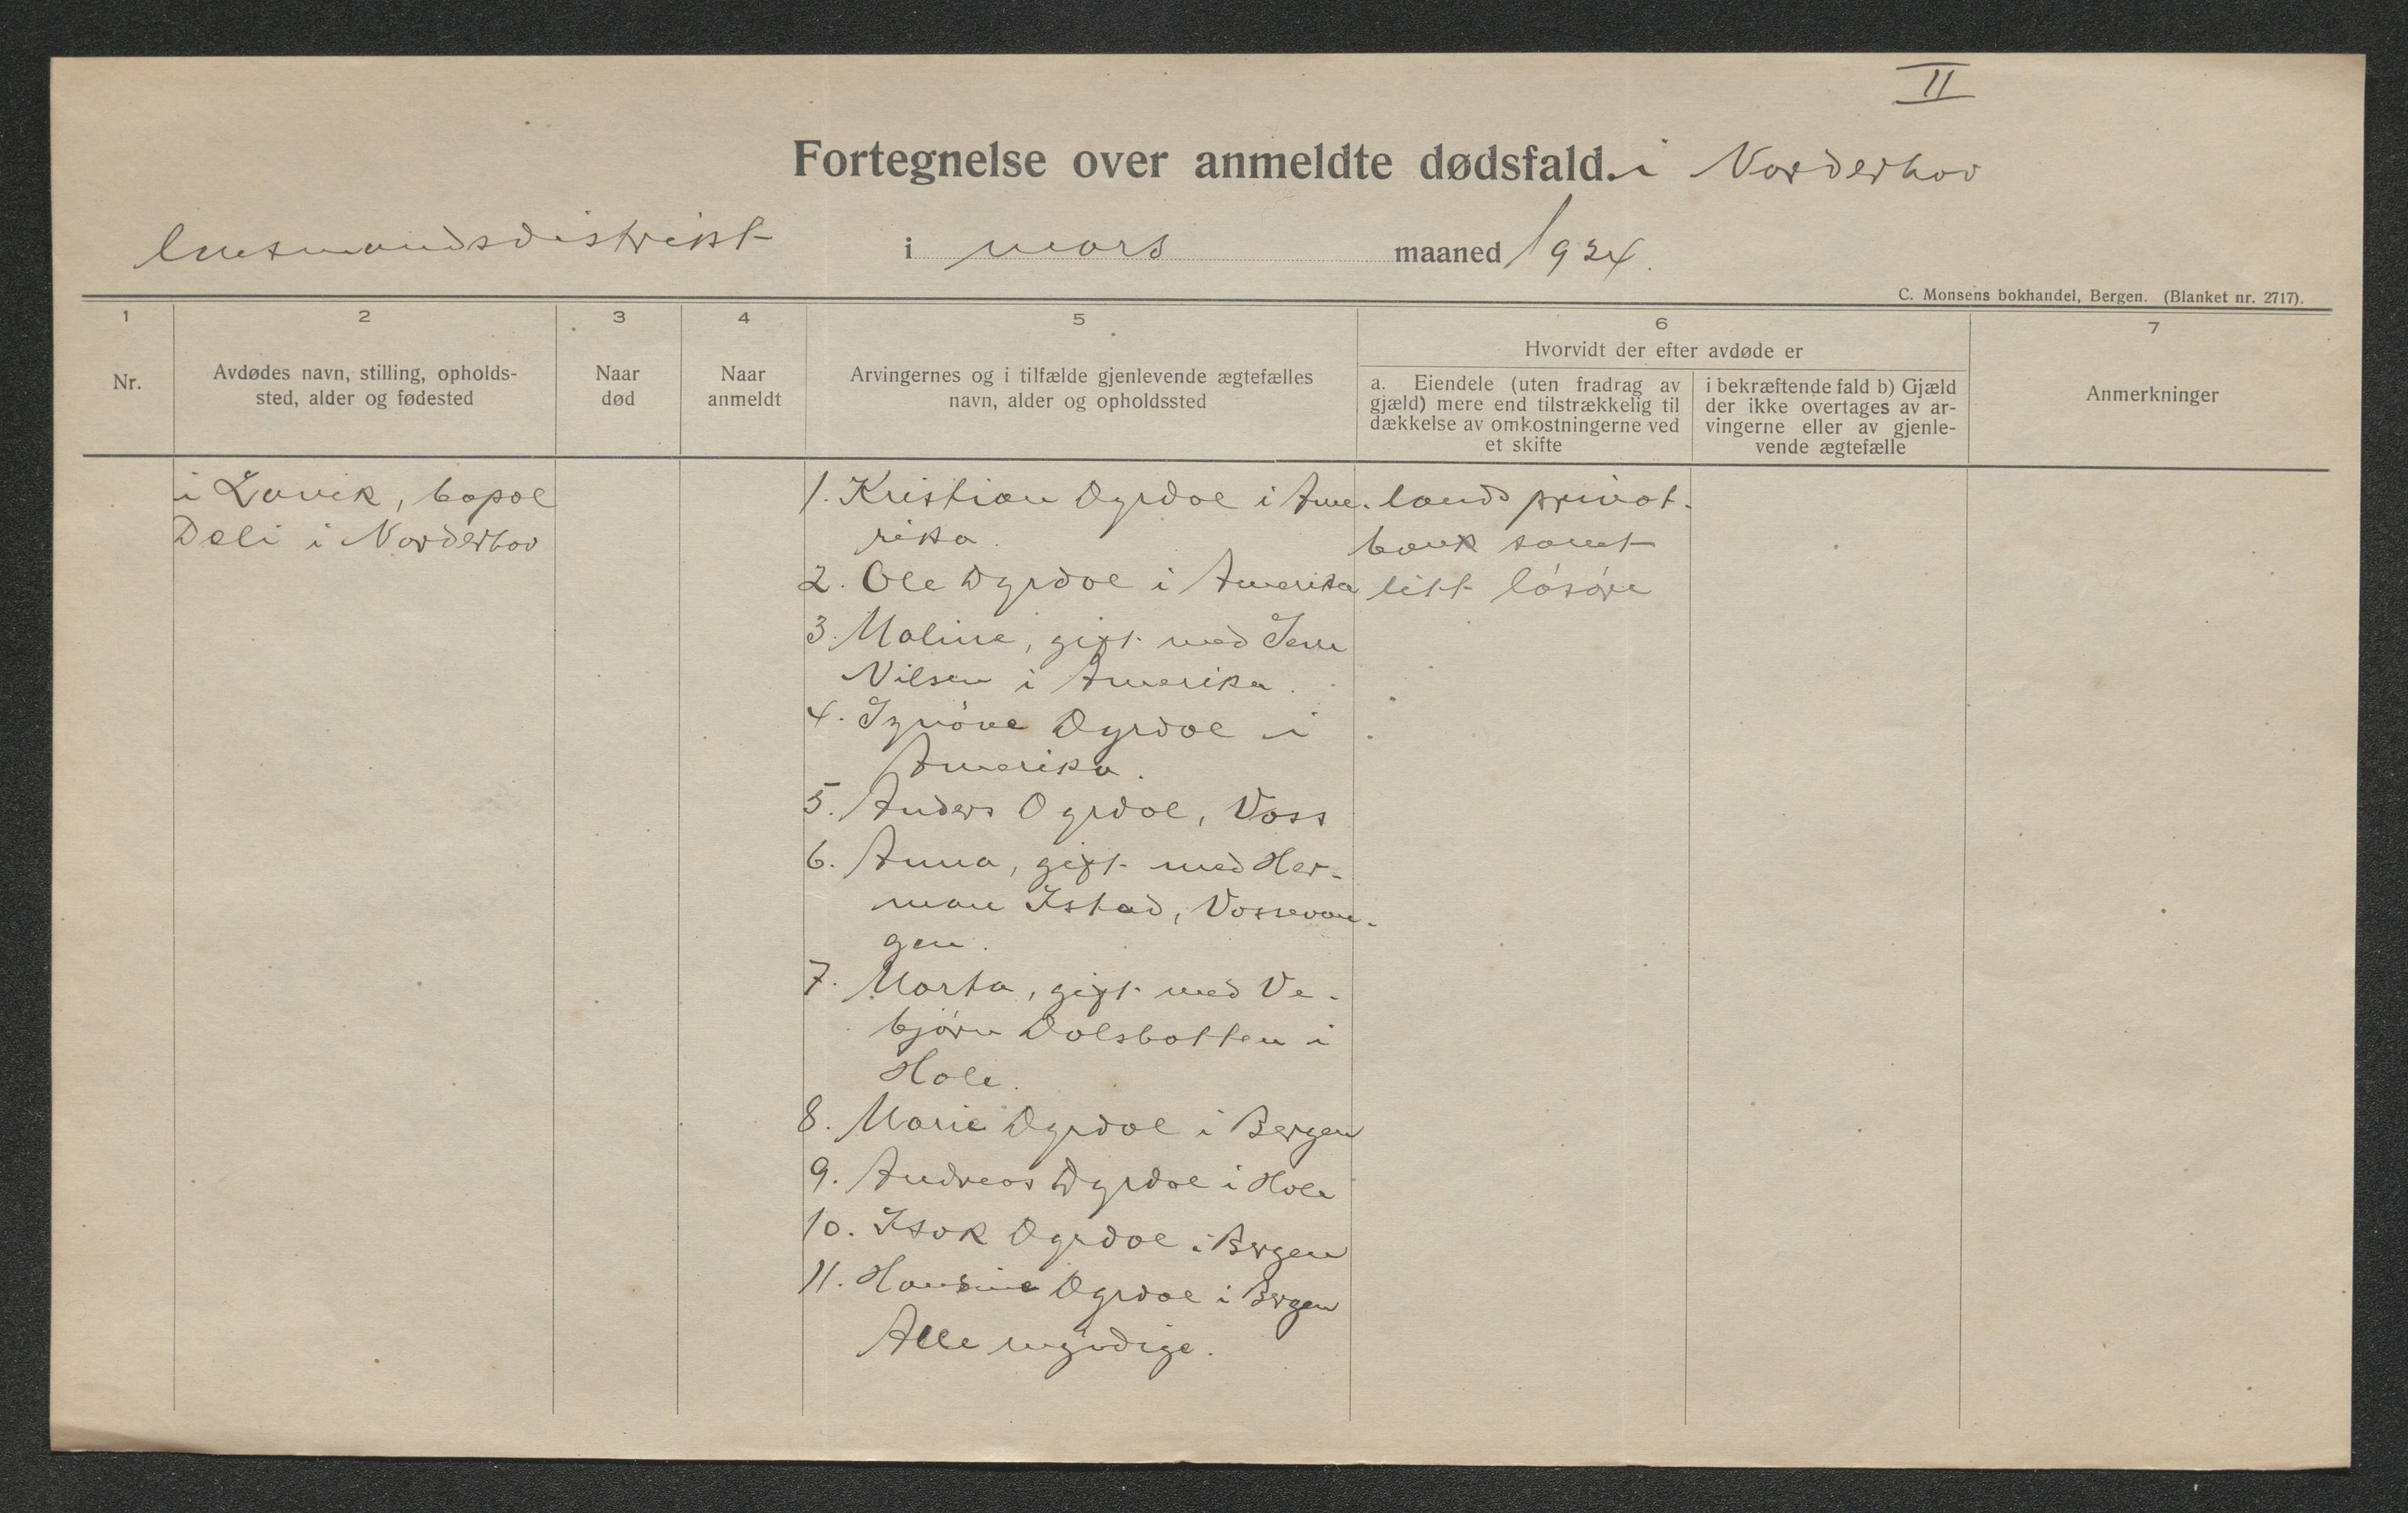 II
Fortegnelse over anmeldte dødsfald. i Norderhov
lensmandsdistrikt i mars maaned 1924.
C. Monsens bokhandel, Bergen. (Blanket nr. 2717).
1 2 3 4 5 6 7
Nr.
Avdødes navn, stilling, opholds-
sted, alder og fødested
Naar
død
Naar
anmeldt
Arvingernes og i tilfælde gjenlevende ægtefælles
navn, alder og opholdssted
Hvorvidt der efter avdøde er
a. Eiendele (uten fradrag av
gjæld) mere end tilstrækkelig til
dækkelse av omkostningerne ved
et skifte
i bekræftende fald b) Gjæld
der ikke overtages av ar-
vingerne eller av gjenle-
vende ægtefælle
Anmerkninger
i Lavik, bopæl
Deli i Norderhov
1. Kristian Dyrdal i Ame-
rika.
2. Ole Dyrdal i Amerika
3. Maline, gift med Jens
Nilsen i Amerika.
4. Synöve Dyrdal i
Amerika.
5. Anders Dyrdal, Voss
6. Anna, gift med Her-
man Istad, Vossevan-
gen.
7. Marta, gift med Ve-
björn Dolsbotten i
Hole.
8. Marie Dyrdal i Bergen
9. Andreas Dyrdal i Hole
10. Isak Dyrdal i Bergen
11. Hansine Dyrdal i Bergen
Alle myndige.
lands privat-
bank samt
litt lösöre